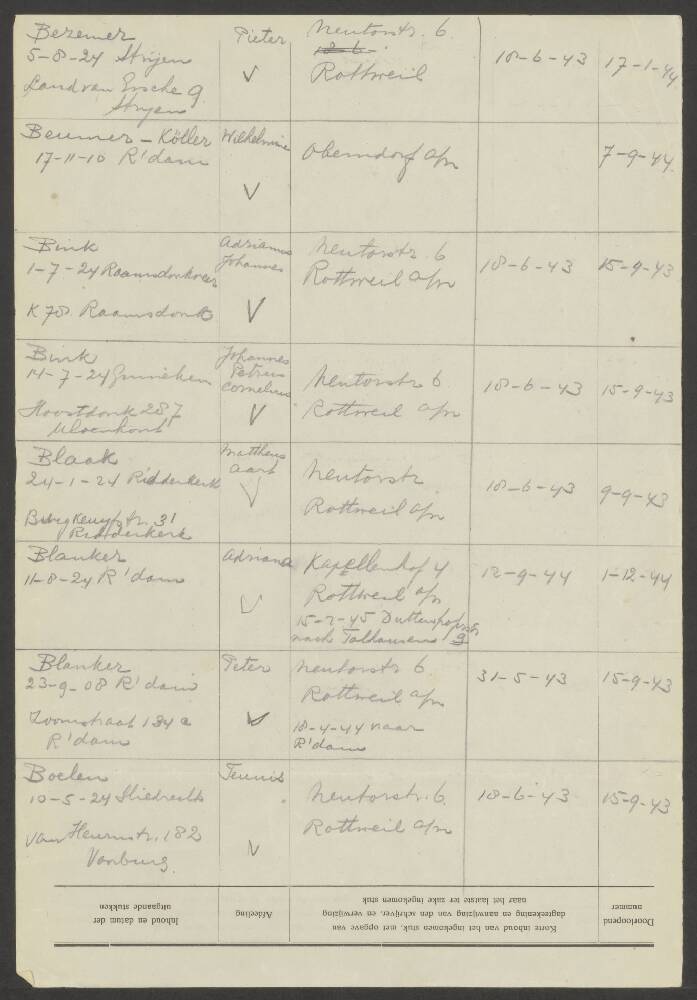 Bezemer Pieter Neutorstr. 6.
5-8-24 Strijen
18-6-43 17-1-44
Land van Essche 9 Rottweil
Strijen
Beumer-Köller Wilhelmina
17-11-10 R'dam Oberndorf a/n 7-9-44
Bink Adrianus Neutorstr. 6
1-7-24 Raamsdonksveer Johannes Rottweil a/n 18-6-43 15-9-43
K 78 Raamsdonk
Bink Johannes
14-7-24 Ginneken Petrus Neutorstr 6 18-6-43 15-9-43
Cornelius
287 Rottweil a/n
Ulvenhout
Blaak Mattheus Neutorstr
24-1-24 Ridderkerk Aart 18-6-43 9-9-43
31 Rottweil a/n
Ridderkerk
Blanker Adriana Kapellenhof 4 12-9-44 1-12-44
11-8-24 R'dam Rottweil a/n
nach Talhausen 9
Blanker Peter Neutorstr 6 31-5-43 15-9-43
23-9-08 R'dam Rottweil a/n
Zoomstraat 184a 18-4-44 naar
R'dam R'dam
Boelen Teunis
10-5-24 Sliedrecht Neutorstr. 6. 18-6-43 15-9-43
182 Rottweil a/n
Voorburg
Doorloopend nummer
Korte inhoud van het ingekomen stuk, met opgave van
dagteekening en aanwijzing van den schrijver, en verwijzing
naar het laatste ter zake ingekomen stuk
Afdeeling
Inhoud en datum der
uitgaande stukken